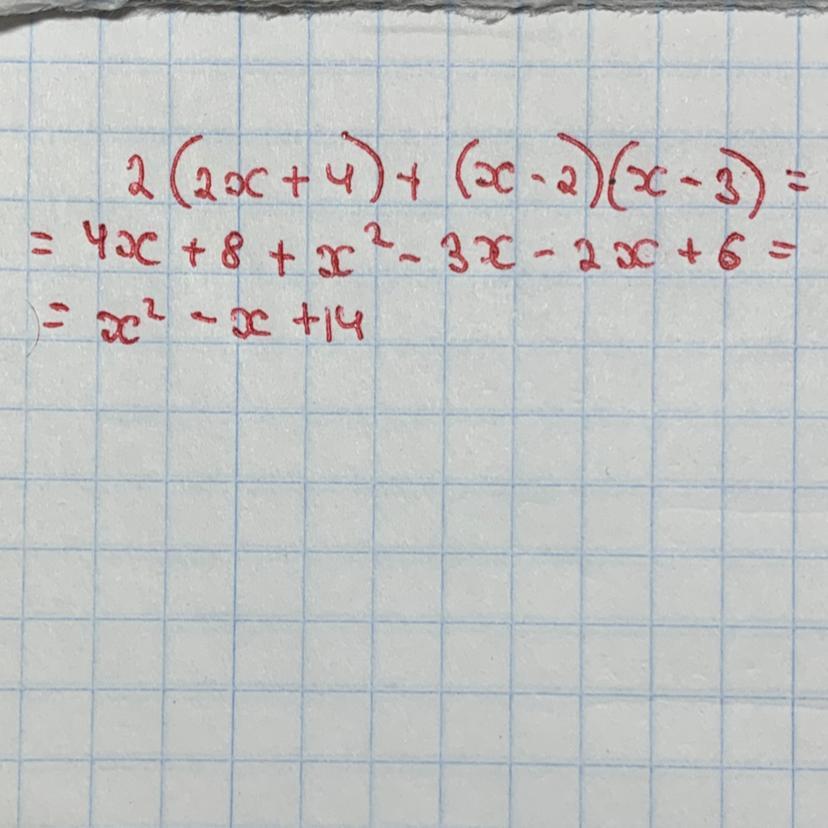 2(2x+4)+(x-2)(x-3)=
=4x+8+x²-3x-2x+6=
=x²-x+14